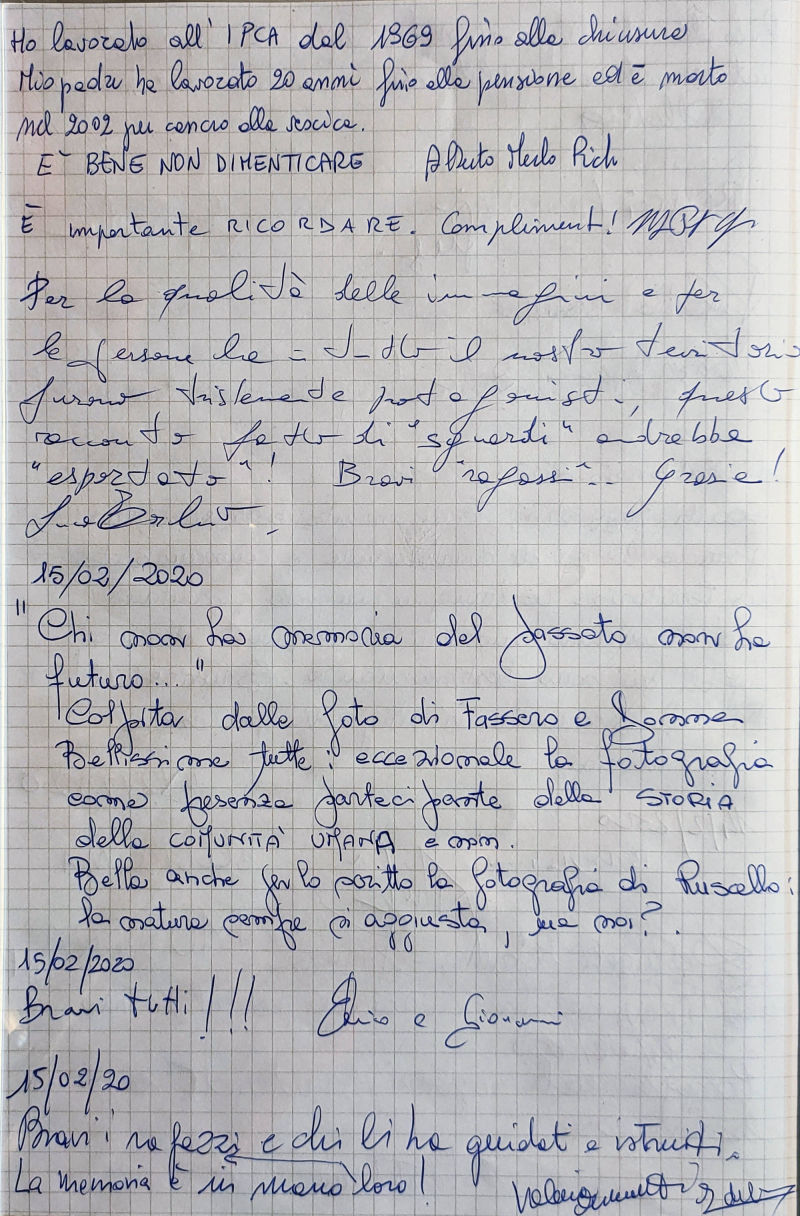 Ho lavorato all' IPCA dal 1969 fino alla chiusura
Mio padre ha lavorato 20 anni fino alla pensione ed è morto
nel 2002 per cancro alla vescica.
E' BENE NON DIMENTICARE Alberto Merlo Pich
È importante RICORDARE. Complimenti!
Per la qualità delle immagini e per
le persone che in tutto il nostro territorio
furono tristemente protagonisti, questo
racconto fatto di "sguardi" andrebbe
"esportato"! Bravi "ragassi".. Grazie!
15/02/2020
"Chi non ha memoria del passato non ha
futuro..."
Colpita dalle foto di Fassero e
Bellissime tutte: eccezionale la fotografia
come presenza partecipante della STORIA
della COMUNITÀ UMANA e non.
Bella anche per lo scritto la fotografia di Ruscello:
la natura sempre si aggiusta, ma noi?.
15/02/2020
Bravi tutti!!! e Giovanni
15/02/20
Bravi i ragazzi e chi li ha guidati e istruiti.
La memoria è in mano loro!